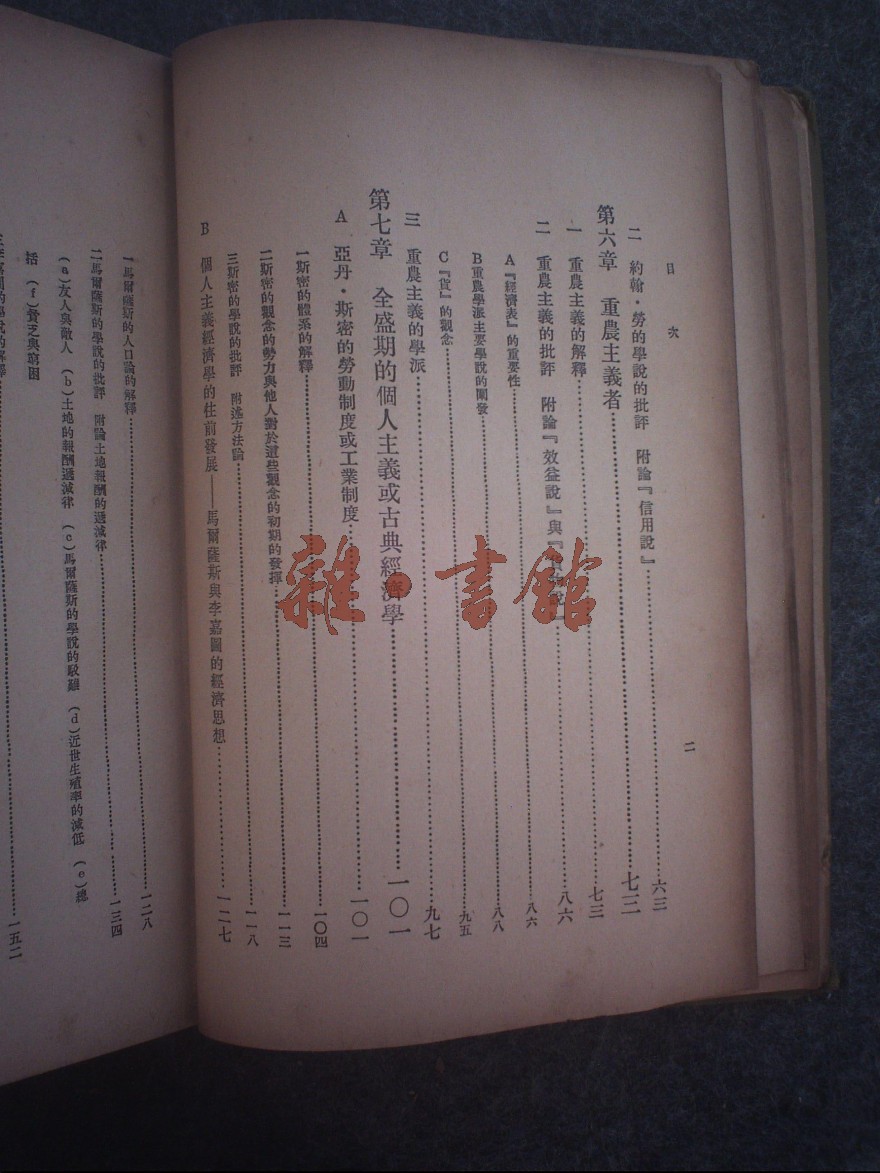 目次
二
二 約翰・勞的學說的批評 附論『信用說』……六三
第六章 重農主義者……七三
一 重農主義的解釋……七三
二 重農主義的批評 附論『效益說』與『 』……八六
A『經濟表』的重要性……八六
B重農學派主要學說的闡發……八八
C『貨』的觀念……九五
三 重農主義的學派……九七
第七章 全盛期的個人主義或古典經濟學……一〇一
A 亞丹・斯密的勞動制度或工業制度……一〇一
一斯密的體系的解釋……一〇四
二斯密的觀念的勢力與他人對於這些觀念的初期的發揮……一一三
三斯密的學說的批評 附述方法論……一一八
B 個人主義經濟學的往前發展——馬爾薩斯與李嘉圖的經濟思想……一二七
一馬爾薩斯的人口論的解釋……一二八
二馬爾薩斯的學說的批評 附論土地報酬的遞減律……一三四
(a)友人與敵人 (b)土地的報酬遞減律 (c)馬爾薩斯的學說的駁難 (d)近世生殖率的減低 (e)總
括 (f)貧乏與窮困
李嘉圖的學說的解釋……一五二
雜・書館